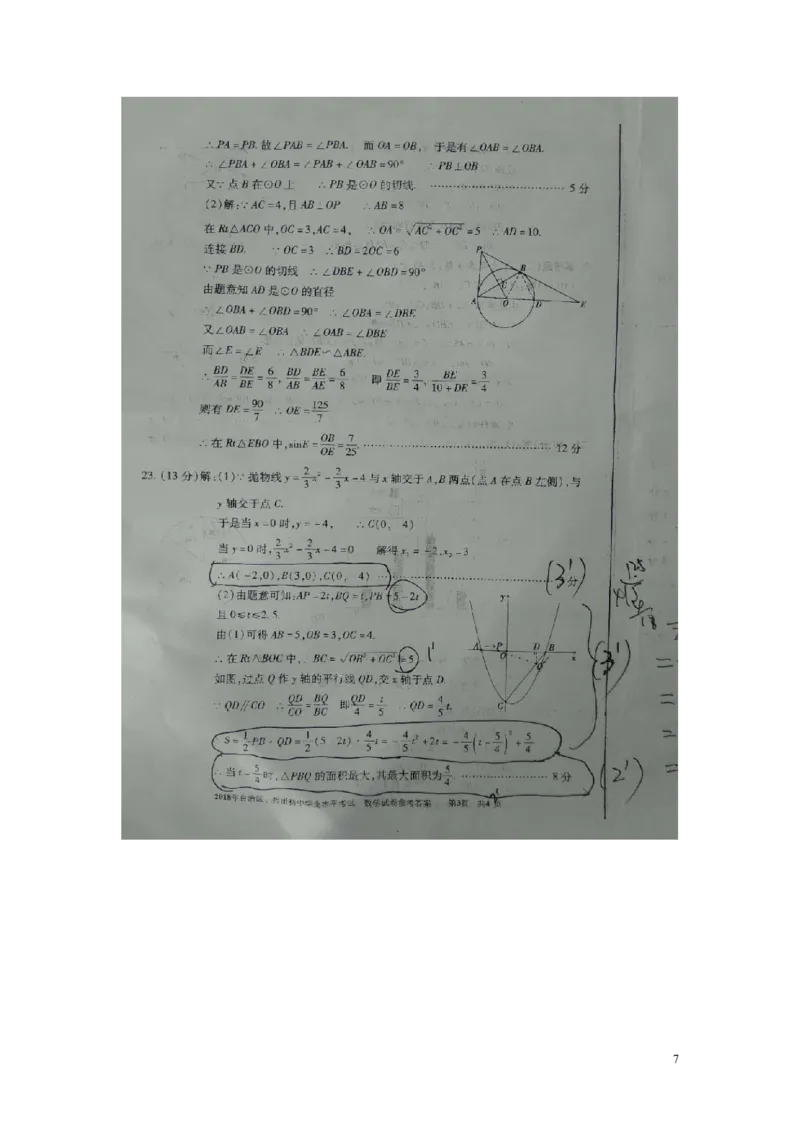 ∴PA=PB.故∠PAB=∠PBA. 而OA=OB, 于是有∠OAB=∠OBA.
∴∠PBA+∠OBA=∠PAB+∠OAB=90° ∴PB⊥OB
又∵点B在⊙O上 ∴PB是⊙O的切线. ································ 5分
(2)解:∵AC=4,且AB⊥OP ∴AB=8
在Rt△ACO中,OC=3,AC=4, ∴OA=√(AC²+OC²)=5 ∴AD=10.
连接BD. ∵OC=3 ∴BD=2OC=6
∵PB是⊙O的切线 ∴∠DBE+∠OBD=90°
由题意知AD是⊙O的直径
∴∠OBA+∠OBD=90° ∴∠OBA=∠DBE
又∠OAB=∠OBA ∴∠OAB=∠DBE
而∠E=∠E ∴△BDE∽△ABE.
∴BD/AB=DE/BE=6/8, BD/AB=BE/AE=6/8 即DE/BE=3/4, BE/(10+DE)=3/4
则有DE=90/7 ∴OE=125/7
∴在Rt△EBO中,sinE=OB/OE=7/25. ································ 12分
P
B
C
A
O
D
E
23.(13分)解:(1)∵抛物线y=2/3x²-2/3x-4与x轴交于A,B两点(点A在点B左侧),与
y轴交于点C.
于是当x=0时,y=-4, ∴C(0, 4)
当y=0时,2/3x²-2/3x-4=0 解得x₁=-2,x₂=3
∴A(-2,0),B(3,0),C(0, 4) ································分
(3')
(2)由题意可知:AP=2t,BQ=t,PB=5-2t
且0≤t≤2.5
由(1)可得AB=5,OB=3,OC=4.
∴在Rt△BOC中, BC=√(OB²+OC²)=5
1'
如图,过点Q作y轴的平行线QD,交x轴于点D.
∵QD∥CO ∴QD/CO=BQ/BC 即QD/4=t/5 ∴QD=4/5t.
y
A
P
O
D
B
x
Q
C
(3')
S=1/2PB·QD=1/2(5 2t)·4/5t=-4/5t²+2t=-4/5(t-5/4)²+5/4
∴当t=5/4时,△PBQ的面积最大,其最大面积为5/4. ···················· 8分
(2')
2018年自治区、兵团初中学业水平考试 数学试卷参考答案 第3页 共4页
7